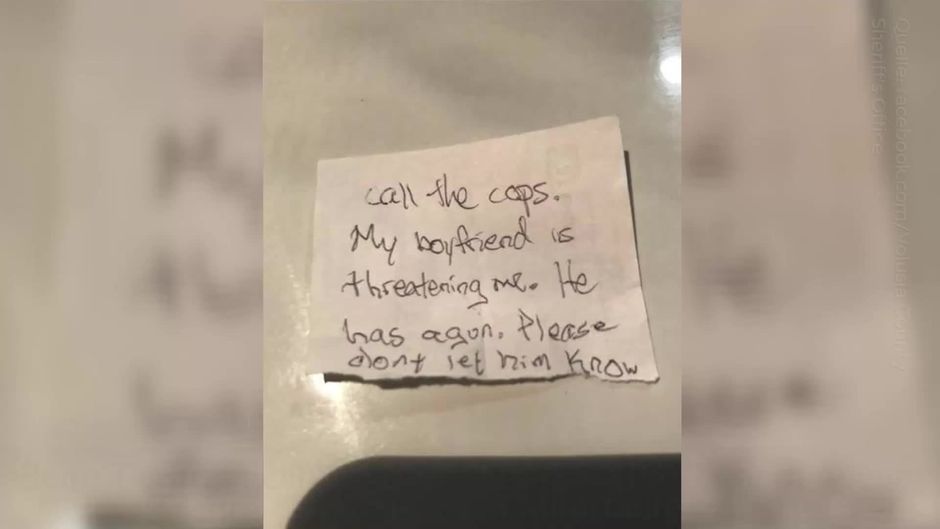 call the cops.
My boyfriend is
threatening me. He
has a gun. Please
dont let him know
Quelle: facebook.com/Volusia County
Sheriff's Office